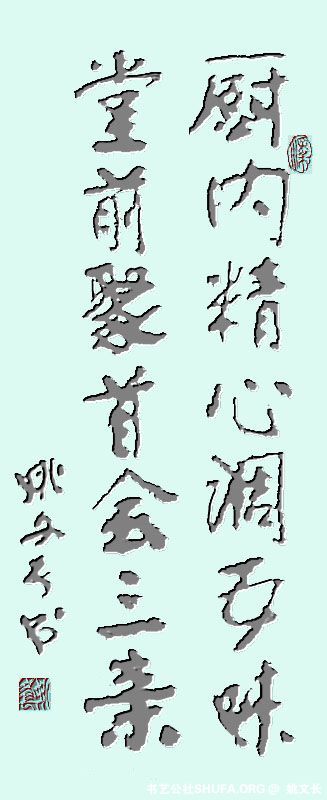 厨内精心调五味
堂前聚首会三亲
姚文长书
书艺公社SHUFA.ORG @ 姚文长